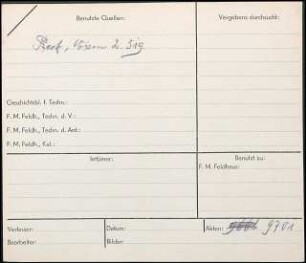 Benutzte Quellen:
Vergebens durchsucht:
2. 519
Geschichtsbl. f. Techn.:
F. M. Feldh., Techn. d. V.:
F. M. Feldh., Techn. d. Ant.:
F. M. Feldh., Kal.:
Irrtümer:
Benutzt zu:
F. M. Feldhaus:
Verfasser:
Datum:
Akten:
9701
Bearbeiter:
Bilder: